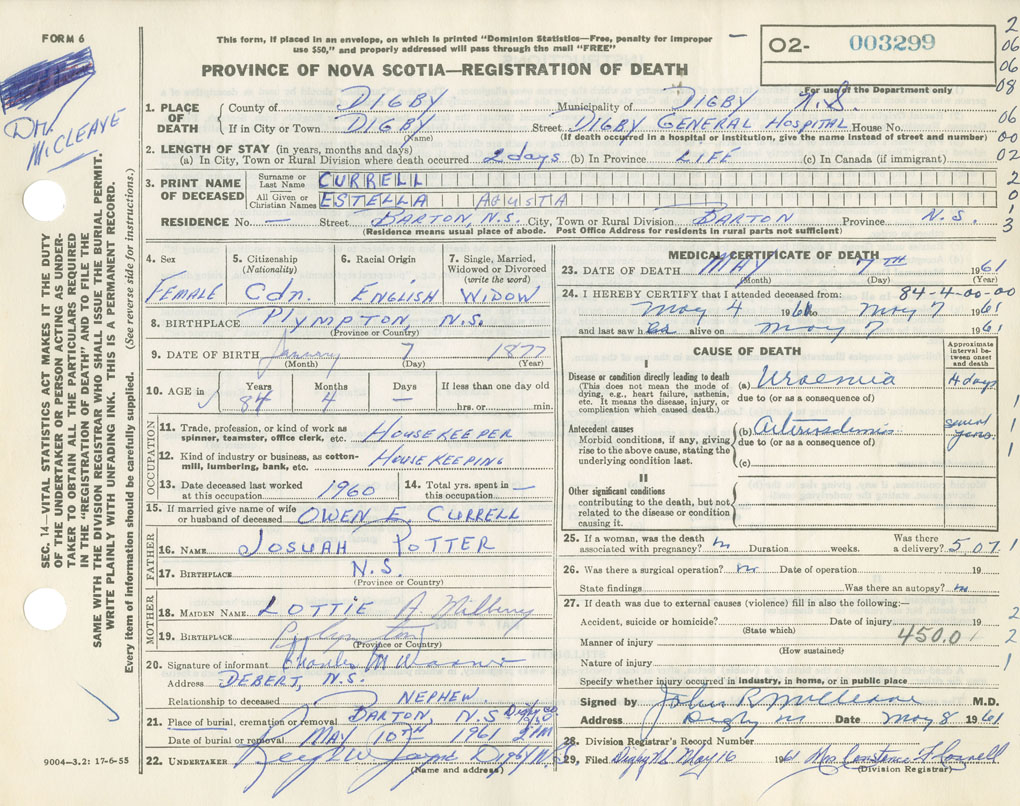 FORM 6
This form, if placed in an envelope, on which is printed "Dominion Statistics—Free, penalty for improper
use $50," and properly addressed will pass through the mail "FREE"
PROVINCE OF NOVA SCOTIA—REGISTRATION OF DEATH
O2- 003299
For use of the Department only
2
06
06
08
06
00
02
2
0
1
3
Dr.
McCLEAVE
SEC. 14—VITAL STATISTICS ACT MAKES IT THE DUTY
OF THE UNDERTAKER OR PERSON ACTING AS UNDER-
TAKER TO OBTAIN ALL THE PARTICULARS REQUIRED
IN THE "REGISTRATION OF DEATH" AND TO FILE THE
SAME WITH THE DIVISION REGISTRAR WHO SHALL ISSUE THE BURIAL PERMIT.
WRITE PLAINLY WITH UNFADING INK. THIS IS A PERMANENT RECORD.
Every item of information should be carefully supplied. (See reverse side for instructions.)
1. PLACE OF DEATH
County of DIGBY Municipality of DIGBY N.S.
If in City or Town DIGBY Street DIGBY GENERAL HOSPITAL House No.
(Name) (If death occurred in a hospital or institution, give the name instead of street and number)
2. LENGTH OF STAY (in years, months and days)
(a) In City, Town or Rural Division where death occurred 2 days (b) In Province LIFE (c) In Canada (if immigrant)
3. PRINT NAME OF DECEASED
Surname or Last Name CURRELL
All Given or Christian Names ESTELLA AGUSTA
RESIDENCE No. — Street BARTON, N.S. City, Town or Rural Division BARTON Province N.S.
(Residence means usual place of abode. Post Office Address for residents in rural parts not sufficient)
4. Sex FEMALE
5. Citizenship (Nationality) Cdn.
6. Racial Origin ENGLISH
7. Single, Married, Widowed or Divorced (write the word) WIDOW
8. BIRTHPLACE PLYMPTON N.S.
(Province or Country)
9. DATE OF BIRTH January 7 1877
(Month) (Day) (Year)
10. AGE in Years 84 Months 4 Days — If less than one day old hrs. or min.
OCCUPATION
11. Trade, profession, or kind of work as spinner, teamster, office clerk, etc. HOUSEKEEPER
12. Kind of industry or business, as cotton-mill, lumbering, bank, etc. HOUSEKEEPING
13. Date deceased last worked at this occupation 1960 14. Total yrs. spent in this occupation —
15. If married give name of wife or husband of deceased OWEN E. CURRELL
FATHER
16. NAME JOSUAH POTTER
17. BIRTHPLACE N.S.
(Province or Country)
MOTHER
18. MAIDEN NAME LOTTIE A.
19. BIRTHPLACE
(Province or Country)
20. Signature of informant Charles M Warner
Address DEBERT, N.S.
Relationship to deceased NEPHEW
21. Place of burial, cremation or removal BARTON, N.S Digby co.
Date of burial or removal MAY 10TH 1961 2 PM
22. UNDERTAKER Digby N.S
(Name and address)
9004—3.2: 17-6-55
MEDICAL CERTIFICATE OF DEATH
23. DATE OF DEATH MAY 7TH 1961
(Month) (Day) (Year)
84-4-00-00
24. I HEREBY CERTIFY that I attended deceased from:
May 4 1961 to May 7 1961
and last saw her alive on May 7 1961
CAUSE OF DEATH
Approximate interval between onset and death
I
Disease or condition directly leading to death
(This does not mean the mode of dying, e.g., heart failure, asthenia, etc. It means the disease, injury, or complication which caused death.)
(a) Uraemia 4 days
due to (or as a consequence of)
Antecedent causes
Morbid conditions, if any, giving rise to the above cause, stating the underlying condition last.
(b) several years
due to (or as a consequence of)
(c)
II
Other significant conditions
contributing to the death, but not related to the disease or condition causing it.
1
1
1
25. If a woman, was the death associated with pregnancy? no Duration weeks. Was there a delivery? 507. 1
26. Was there a surgical operation? no Date of operation 19
State findings Was there an autopsy? no
27. If death was due to external causes (violence) fill in also the following:—
Accident, suicide or homicide? Date of injury 19
(State which)
Manner of injury 450.0
(How sustained)
Nature of injury
2
2
1
Specify whether injury occurred in industry, in home, or in public place
Signed by John R McCleave M.D.
Address Digby NS Date May 8 1961
28. Division Registrar's Record Number
29. Filed Digby NS May 16 1961 Mrs Constance
(Division Registrar)